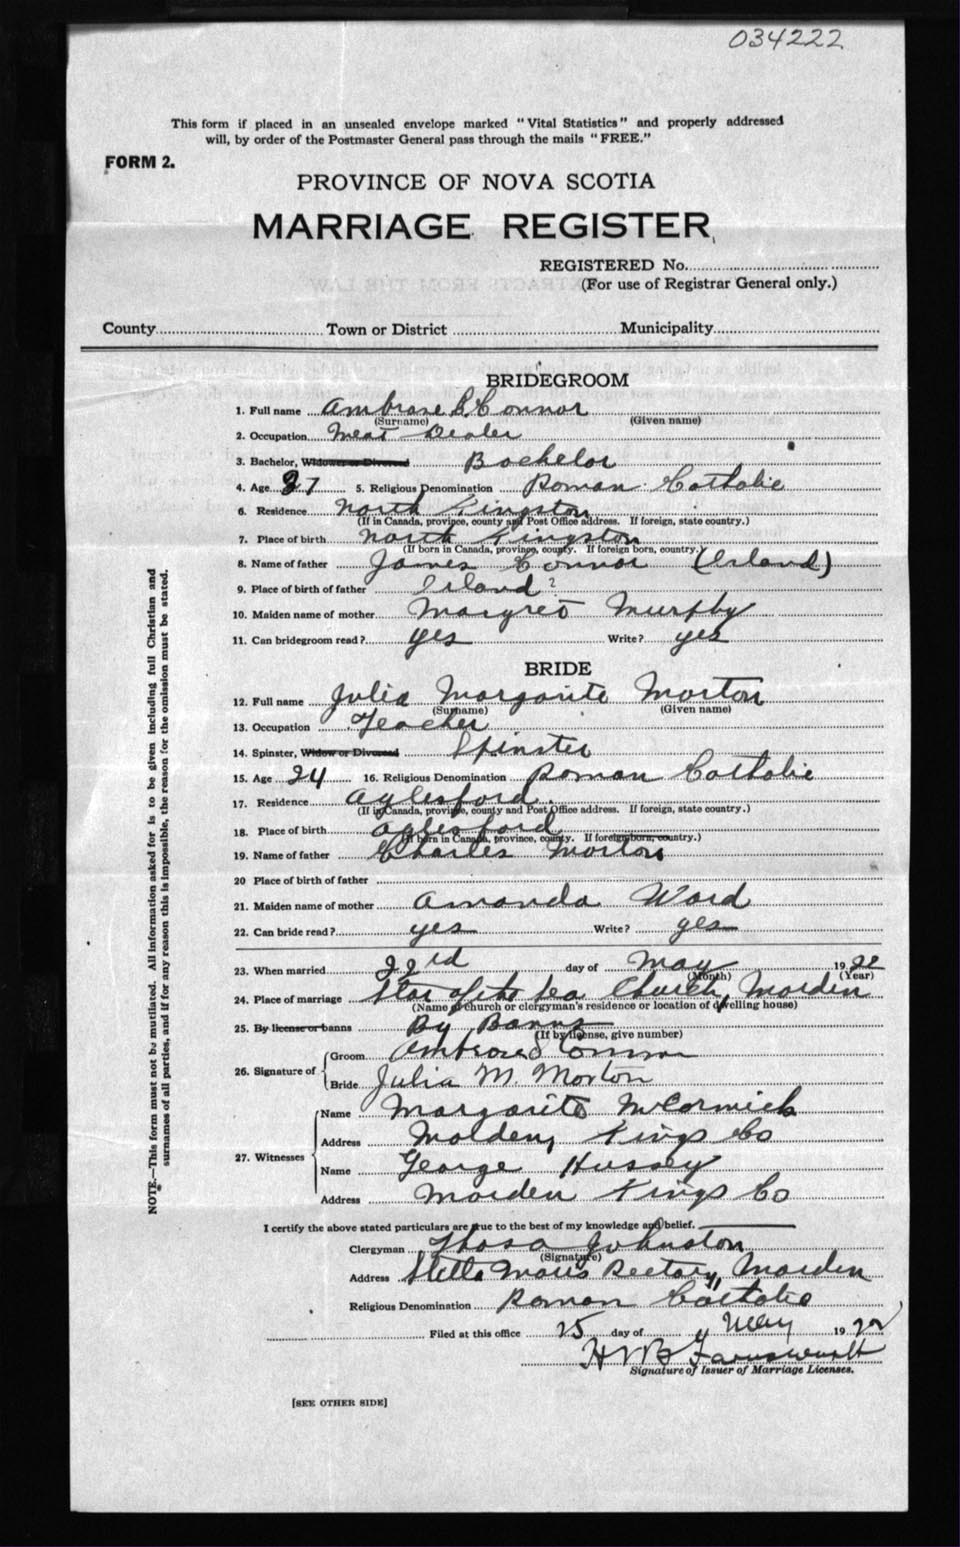 034222
This form if placed in an unsealed envelope marked "Vital Statistics" and properly addressed
will, by order of the Postmaster General pass through the mails "FREE."
FORM 2.
PROVINCE OF NOVA SCOTIA
MARRIAGE REGISTER
REGISTERED No.
(For use of Registrar General only.)
County Town or District Municipality
BRIDEGROOM
1. Full name Ambrose S. Connor
(Surname) (Given name)
2. Occupation Meat Dealer
3. Bachelor, Widower or Divorced Bachelor
4. Age 37 5. Religious Denomination Roman Catholic
6. Residence North Kingston
(If in Canada, province, county and Post Office address. If foreign, state country.)
7. Place of birth North Kingston
(If born in Canada, province, county. If foreign born, country.)
8. Name of father James Connor (Irland)
9. Place of birth of father Irland?
10. Maiden name of mother Margret Murphy
11. Can bridegroom read? yes Write? yes
BRIDE
12. Full name Julia Margarite Morton
(Surname) (Given name)
13. Occupation Teacher
14. Spinster, Widow or Divorced Spinster
15. Age 24 16. Religious Denomination Roman Catholic
17. Residence Aylesford
(If in Canada, province, county and Post Office address. If foreign, state country.)
18. Place of birth Aylesford
(If born in Canada, province, county. If foreign born, country.)
19. Name of father Charles Morton
20 Place of birth of father
21. Maiden name of mother Amanda Ward
22. Can bride read? yes Write? yes
23. When married 22rd day of May 1922
(Month) (Year)
24. Place of marriage Star of the Sea Church, Morden
(Name of church or clergyman's residence or location of dwelling house)
25. By license or banns By Banns
(If by license, give number)
26. Signature of Groom Ambrose S Connor
Bride Julia M. Morton
27. Witnesses Name Margarite McCormick
Address Molden, Kings Co
Name George Hussey
Address Morden Kings Co
I certify the above stated particulars are true to the best of my knowledge and belief.
Clergyman Thos a Johnston
(Signature)
Address Stella Maris Rectory, Morden
Religious Denomination Roman Catholic
Filed at this office 25 day of May 1922
H W B Farnsworth
Signature of Issuer of Marriage Licenses.
[SEE OTHER SIDE]
NOTE.—This form must not be mutilated. All information asked for is to be given including full Christian and
surnames of all parties, and if for any reason this is impossible, the reason for the omission must be stated.